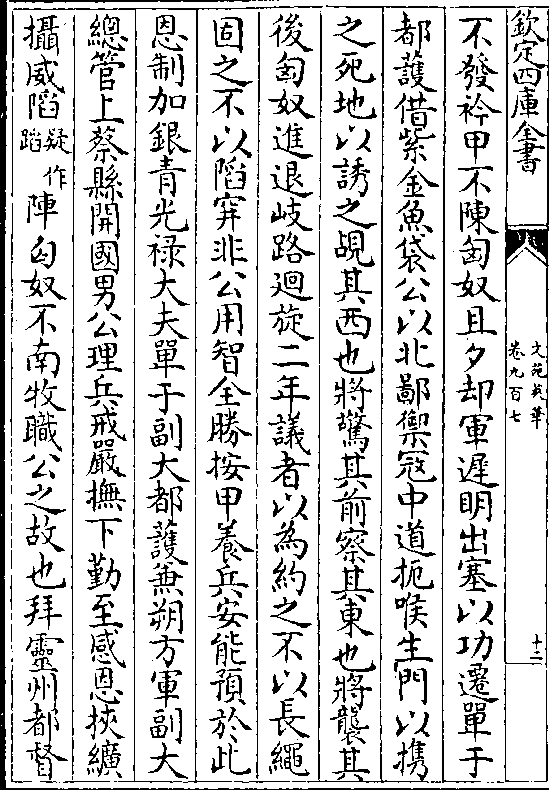 欽定四庫全書
文苑英華
卷九百七
十二
不發衿甲不陳匈奴且夕却軍遲明出塞以功遷單于
都護借紫金魚袋公以北鄙禦冦中道扼喉生門以携
之死地以誘之覘其西也將驚其前察其東也將襲其
後匈奴進退岐路廻旋二年議者以為約之不以長繩
固之不以陷穽非公用智全勝按甲養兵安能預於此
恩制加銀青光禄大夫單于副大都護兼朔方軍副大
總管上蔡縣開國男公理兵戒嚴撫下勤至感恩挾纊
攝威陷疑作蹈陣匈奴不南牧職公之故也拜靈州都督